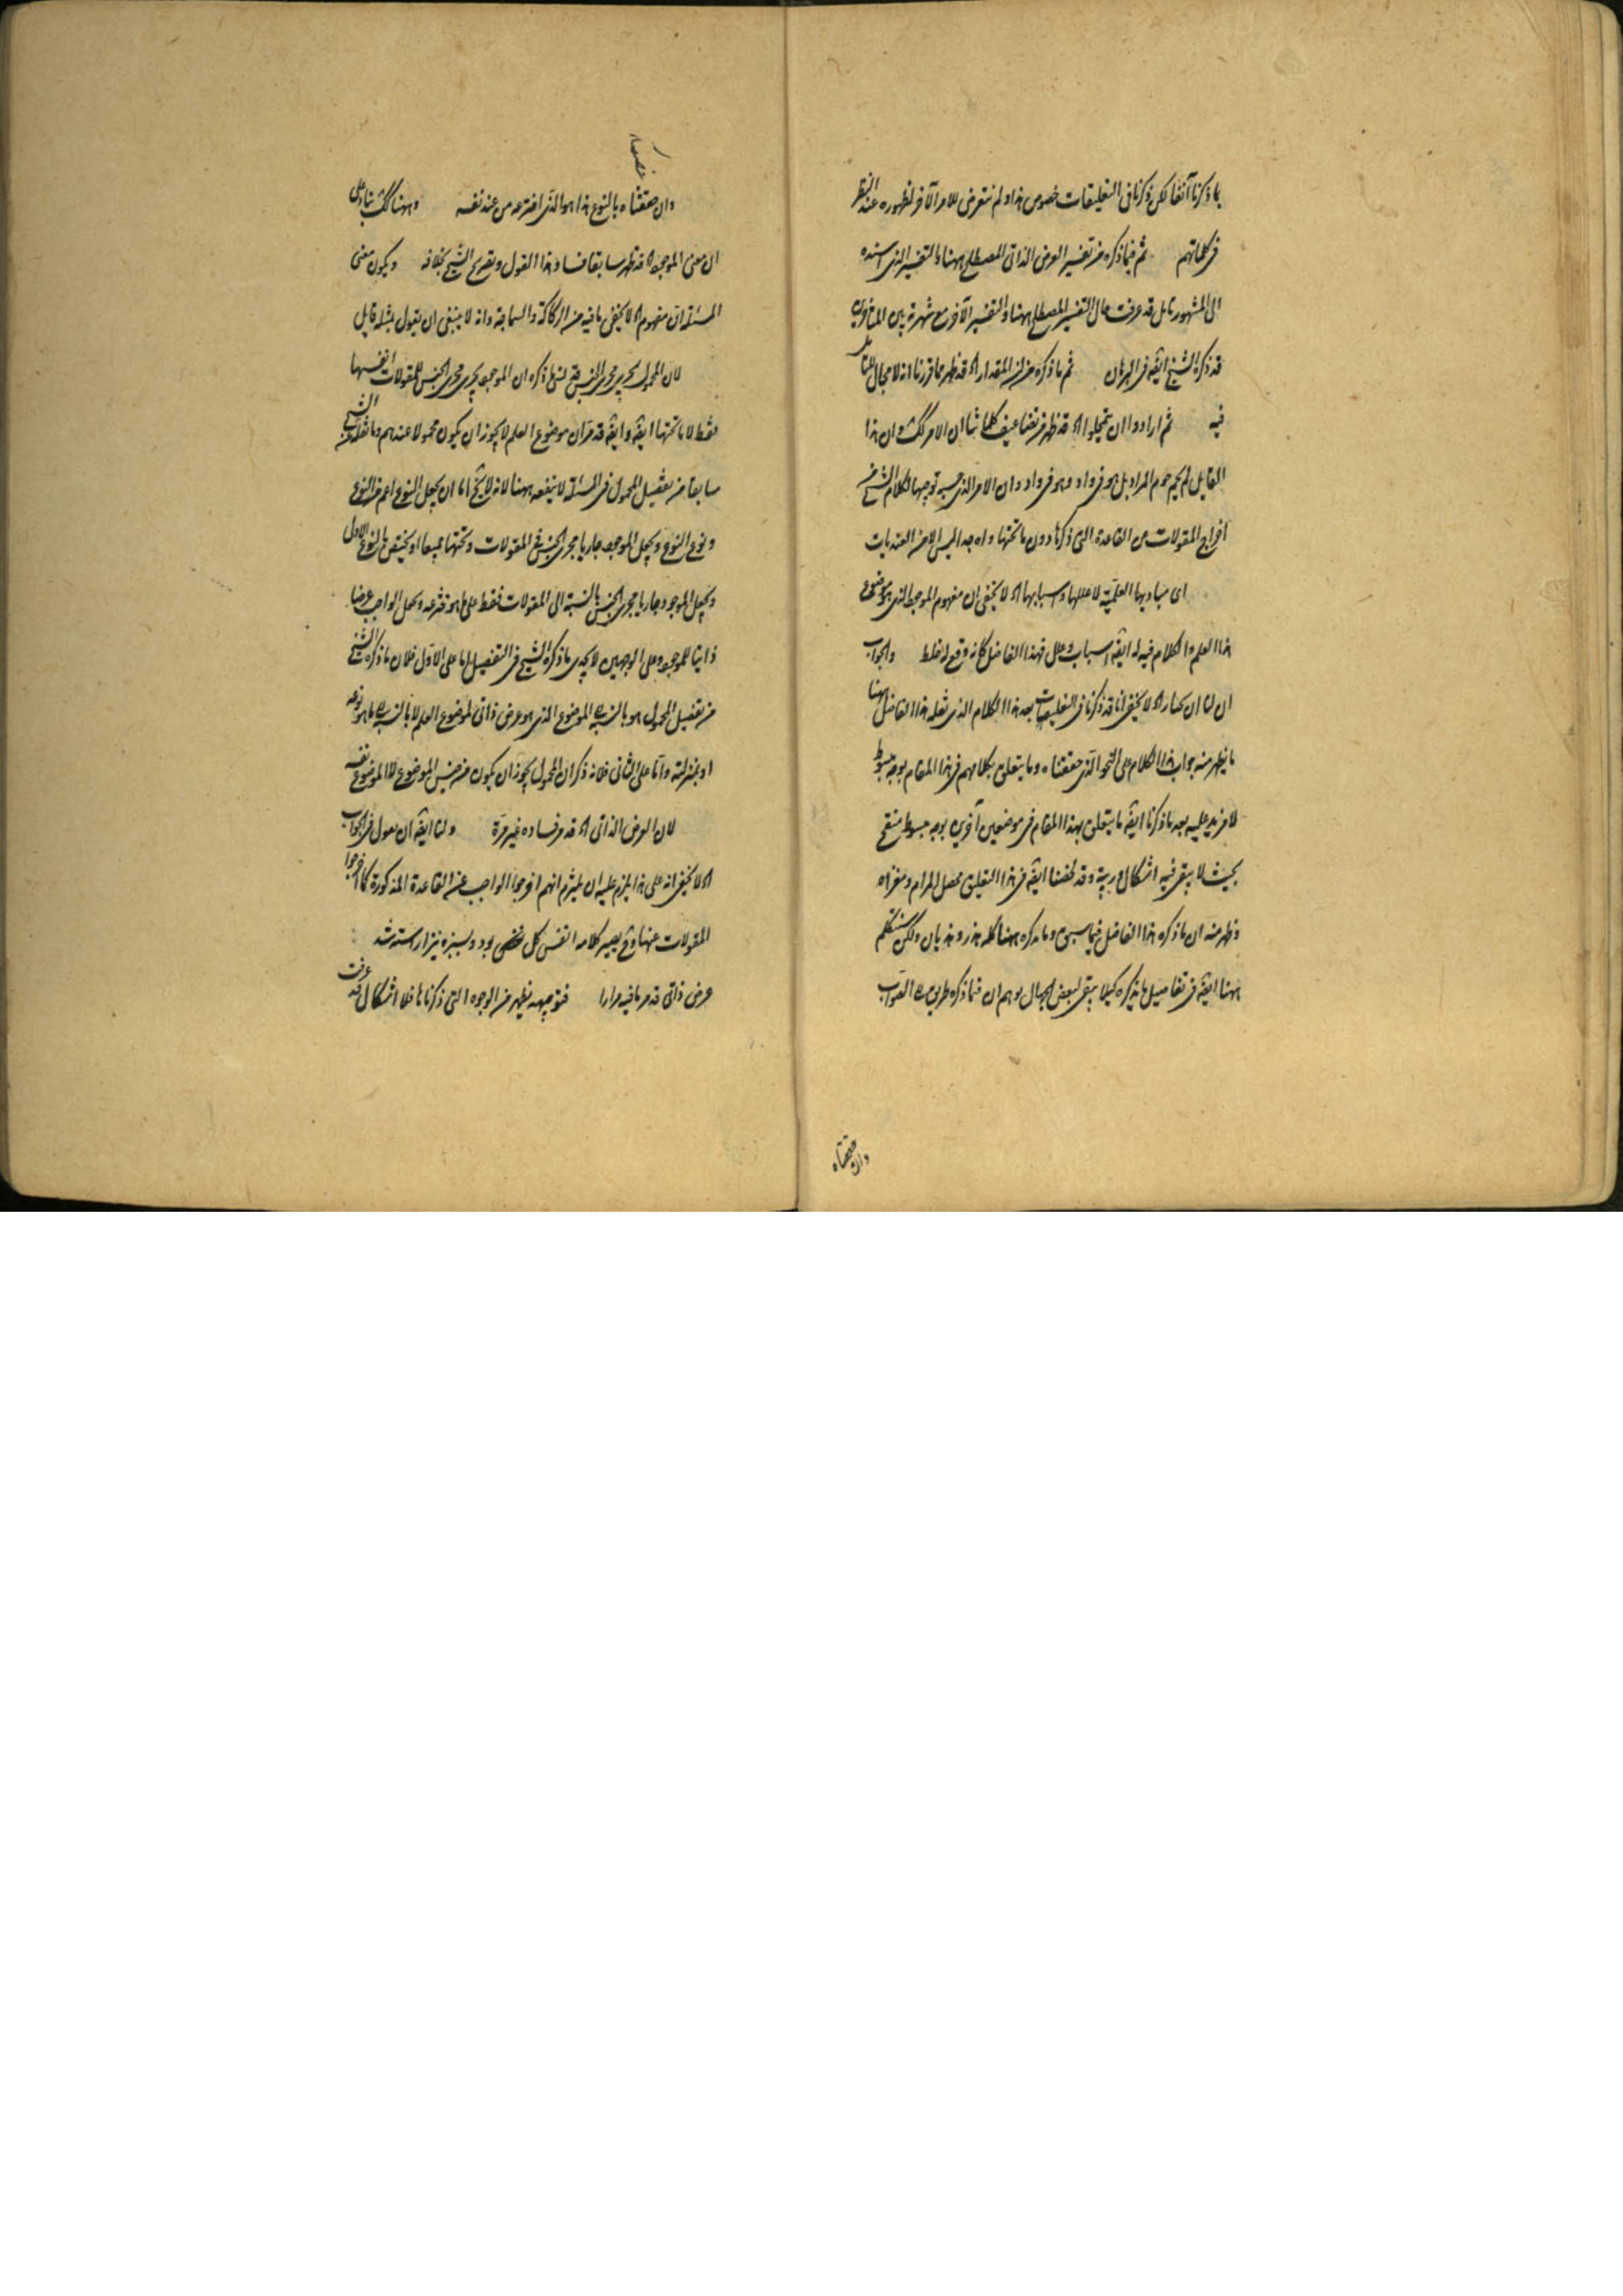 بما ذكرنا آنفا لكن ذكرنا فى التعليقات خصوص هذا ولم نتعرض للامر الآخر لظهوره عند النظر
فى كلماتهم ثم فيما ذكره من تفسير العرض الذاتى المصطلح ههنا بالتفسير الذى اسنده
الى المشهور تامل قد عرفت حال التفسير المصطلح ههنا والتفسير الآخر مع شهرته بين المتاخرين
قد ذكره الشيخ ايضا فى البرهان ثم ما ذكره من ان المقدار اه قد ظهر مما قررنا انه لا مجال للتامل
فيه ثم ارادوا ان يتمحلوا اه قد ظهر من تضاعيف كلماتنا ان الامر كك وان هذا
القايل لم يحم حوم المراد بل هو فى واد وهو فى واد وان الامر الذى حسبه توجيها لكلام الشيخ من
اخراج المقولات من القاعدة التى ذكرها دون ما تحتها واه جدا ليس الا من العنديات
اى مباديها العلمية لا عللها واسبابها اه لا يخفى ان مفهوم الموجود الذى هو موضوع
هذا العلم والكلام فيه له ايضا اسباب وعلل فهذا الفاضل كانه وقع له غلط والجواب
ان لنا ان نختار اه لا يخفى انا قد ذكرنا فى التعليقات بعد هذا الكلام الذى نقله هذا الفاضل ههنا
ما يظهر منه جواب هذا الكلام على النحو الذى حققناه وما يتعلق بكلامهم فى هذا المقام بوجه مبسوط
لا مزيد عليه بعد ما ذكرنا ايضا ما يتعلق بهذا المقام فى موضعين آخرين بوجه مبسوط منقح
بحيث لا يبقى فيه اشكال وريبة وقد لخصنا ايضا فى هذا التعليق محصل المرام ومغزاه
وظهر منه ان ما ذكره هذا الفاضل فيما سبق وما يذكره ههنا كله هذر وهذيان ولكن سنتكلم
ههنا ايضا فى تفاصيل ما يذكره كيلا يبقى لبعض الجهال توهم ان فيما ذكره طريق الصواب
وان حققناه
وان حققناه بالنوع هذا هو الذى اخترعه من عند نفسه وههنا كك بناء على
ان معنى الموجود اه قد ظهر سابقا فساد هذا القول وتصريح الشيخ بخلافه ويكون معنى
المسئلة ان مفهوم اه لا يخفى ما فيه من الركاكة والسماجة وانه لا ينبغى ان يقول بمثله قايل
لان المحمول يجرى مجرى الجنس ان الموجود يجرى مجرى الجنس للمقولات انفسها
فقط لا ما تحتها ايضا وايضا قد مر ان موضوع العلم لا يجوز ان يكون محمولا عندهم وما نقله عن الشيخ
سابقا من تفصيل المحمول فى المسئلة لا ينفعه ههنا لانه لا يخ اما ان يجعل النوع اعم من النوع
ونوع النوع ويجعل الموجود جاريا مجرى الجنس فى المقولات وتحتها جميعا او يختص بالنوع الاول
ويجعل الموجود جاريا مجرى الجنس بالنسبة الى المقولات فقط على ما هو مخترعه ويجعل الواجب عرضا
ذاتيا للموجود وعلى الوجهين لا يجدى ما ذكره الشيخ فى التفصيل اما على الاول فلان ما ذكره الشيخ
من تفصيل المحمول هو بالنسبة الى الموضوع الذى هو عرض ذاتى لموضوع العلم لا بالنسبة الى ما هو نوعه
او بمنزلته واما على الثانى فلانه ذكر ان المحمول يجوز ان يكون من جنس الموضوع لا الموضوع نفسه
لان العرض الذاتى اه قد مر فساده غير مرة ولنا ايضا ان نقول فى الجواب
اه لا يخفى انه على هذا يلزم عليه ان يلتزم انهم اخرجوا الواجب عن القاعدة المذكورة كما اخرجوا
المقولات عنها وح يصير كلامه انفس كل بود وبسبزه نيز اراسته شد
عرض ذاتى قد مر ما فيه مرارا فتوجيهه يظهر من الوجوه التى ذكرناها فلا اشكال قد عرفت